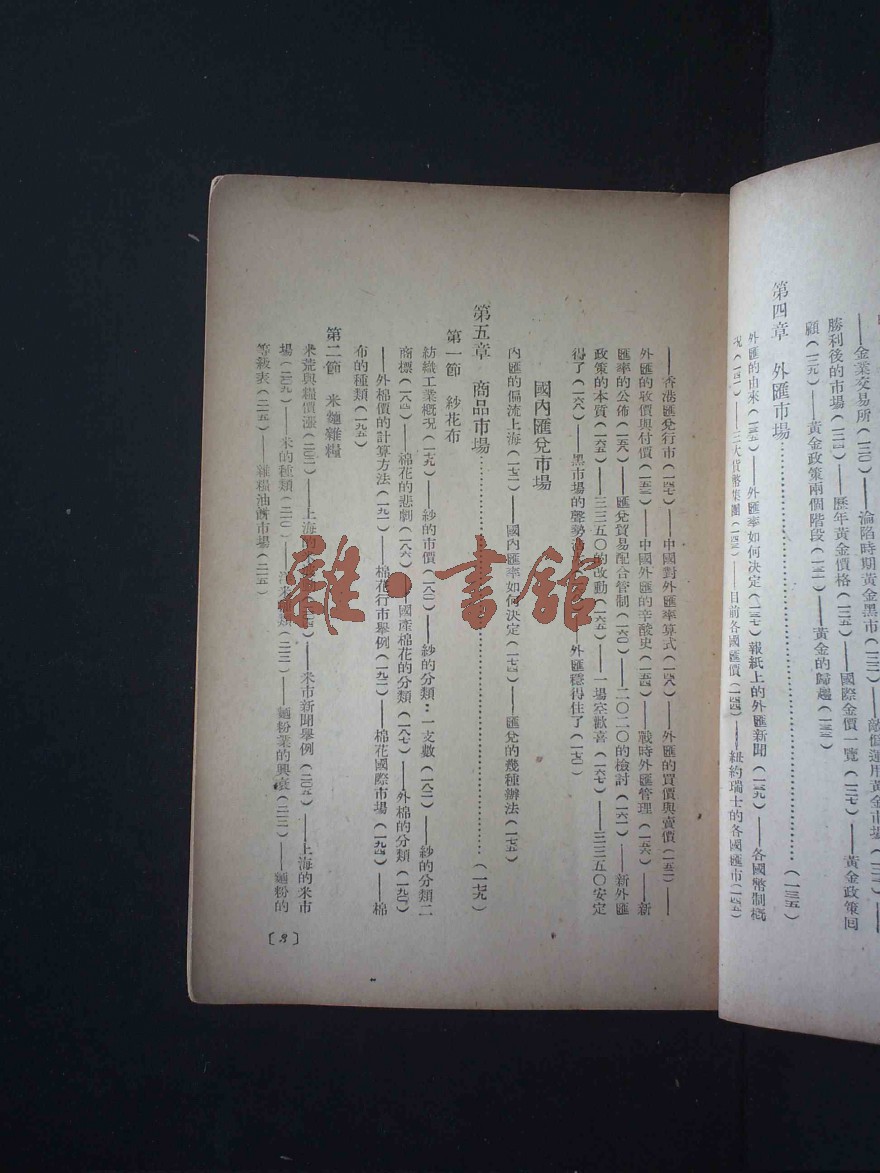 ——金業交易所(一三〇)——淪陷時期黃金黑市(一三二)——敵僞運用黃金市場
勝利後的市場(一三四)——歷年黃金價格(一三五)——國際金價一覽(一三七)——黃金政策回
顧(一三九)——黃金政策兩個階段(一三一)——黃金的歸趨(一三三)
第四章 外匯市場(一三五)
外匯的由來(一三五)——外匯率如何決定(一三七)報紙上的外匯新聞(一三九)——各國幣制概
況(一四一)——三大貨幣集團(一四三)——目前各國匯價(一四四)——紐約瑞士的各國匯市(一四五)
——香港匯兌行市(一四七)——中國對外匯率算式(一四八)——外匯的買價與賣價(一五二)——
外匯的收價與付價(一五三)——中國外匯的辛酸史(一五四)——戰時外匯管理(一五六)——新
匯率的公佈(一五八)——匯兌貿易配合管制(一六〇)——二〇二〇的檢討(一六一)——新外匯
政策的本質(一六五)——三三五〇的改動(一六五)——一場空歡喜(一六七)——三三五〇安定
得了(一六八)——黑市場的聲勢——外匯穩得住了(一七〇)
國內匯兌市場
內匯的偏流上海(一七二)——國內匯率如何決定(一七四)——匯兌的幾種辦法(一七五)
第五章 商品市場(一七九)
第一節 紗花布
紡織工業概況(一七九)——紗的市價(一八二)——紗的分類:一支數(一八二)——紗的分類二
商標(一八四)——棉花的悲劇(一八六)——國產棉花的分類(一八七)——外棉的分類(一九〇)
——外棉價的計算方法(一九一)——棉花行市舉例(一九二)——棉花國際市場(一九四)——棉
布的種類(一九五)
第二節 米麵雜糧
米荒與糧價漲(二〇二)——上海的——米市新聞舉例(二〇五)——上海的米市
場(二〇九)——米的種類(二一〇)——洋米種類(二一二)——麵粉業的興衰(二一三)——麵粉的
等級表(二一五)——雜糧油餅市場(二一五)
〔9〕
雜·書館